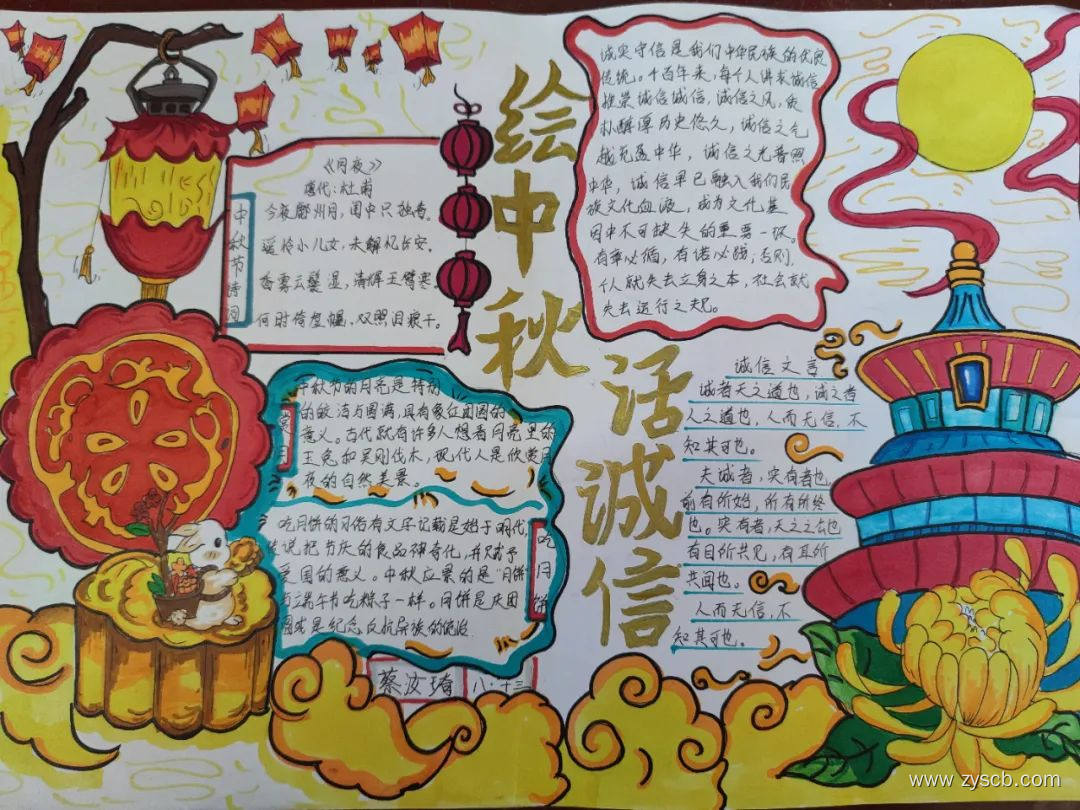 绘中秋
话诚信
《月夜》
唐代:杜甫
中秋节诗词
今夜鄜州月,闺中只独看。
遥怜小儿女,未解忆长安。
香雾云鬟湿,清辉玉臂寒。
何时倚虚幌,双照泪痕干。
诚实守信是我们中华民族的优良
传统。千百年来,每个人讲求诚信
推崇诚信诚信,诚信之风,质
朴醇厚历史悠久,诚信之气
越充盈中华,诚信之光普照
中华,诚信早已融入我们民
族文化血液,成为文化基
因中不可缺失的重要一环。
有章必循,有诺必践,否则,
个人就失去立身之本,社会就
失去运行之规。
中秋节的月亮是特别
的皎洁与圆满,具有象征团圆的
意义。古代就有许多人想看月亮里的
玉兔和吴刚伐木,现代人是欣赏月
夜的自然美景。
吃月饼
吃月饼的风俗有文字记载是始于明代,
传说把节庆的食品神奇化,并赋予
爱国的意义。中秋应景的是“月饼
与端午节吃粽子一样。月饼是庆团
圆或是纪念反抗异族的统治
诚信文言
诚者天之道也,诚之者
人之道也,人而无信,不
知其可也。
夫诚者,实有者也,
前有所始,所有所终
也。实有者,天之之公也
有目所共见,有耳所
共闻也。
人而无信,不
知其可也。
蔡汝琦 八·十三
www.zyscb.com